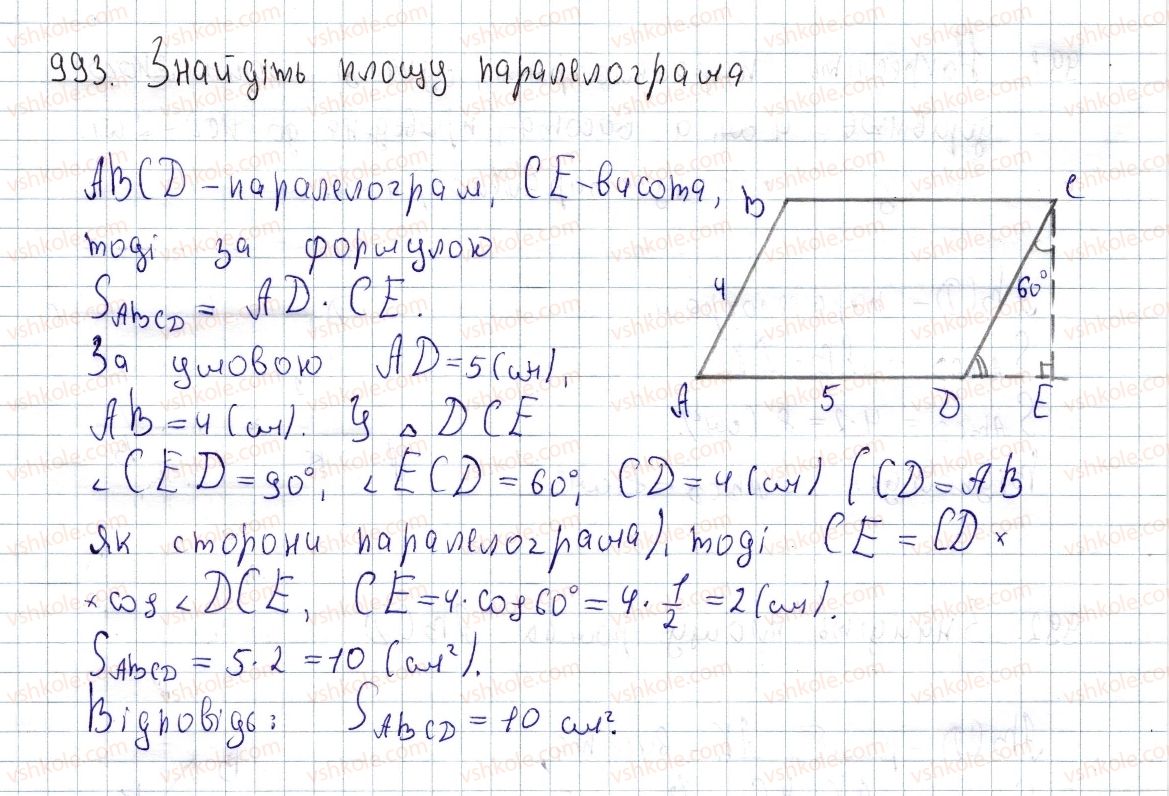 993. Знайдіть площу паралелограма
ABCD - паралелограм, CE - висота,
тоді за формулою
S_ABCD = AD · CE.
За умовою AD = 5 (см),
AB = 4 (см). У △ DCE
∠CED = 90°, ∠ECD = 60°, CD = 4 (см) (CD = AB
як сторони паралелограма), тоді CE = CD ×
× cos ∠DCE, CE = 4 · cos 60° = 4 · 1/2 = 2 (см).
S_ABCD = 5 · 2 = 10 (см²).
Відповідь: S_ABCD = 10 см².
B
C
4
60°
A
5
D
E
vshkole.com